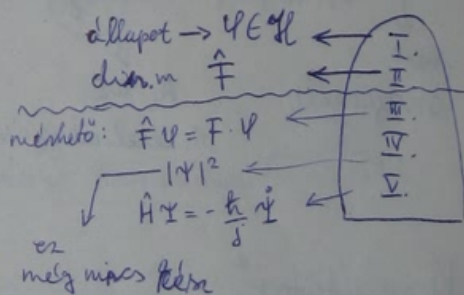 állapot → Ψ ∈ ℋ ← I.
din.m F̂ ← II.
mérhető: F̂ Ψ = F · Ψ ← III.
|Ψ|² ← IV.
Ĥ Ψ = - ħ/j Ψ̇ ← V.
ez
még nincs kész